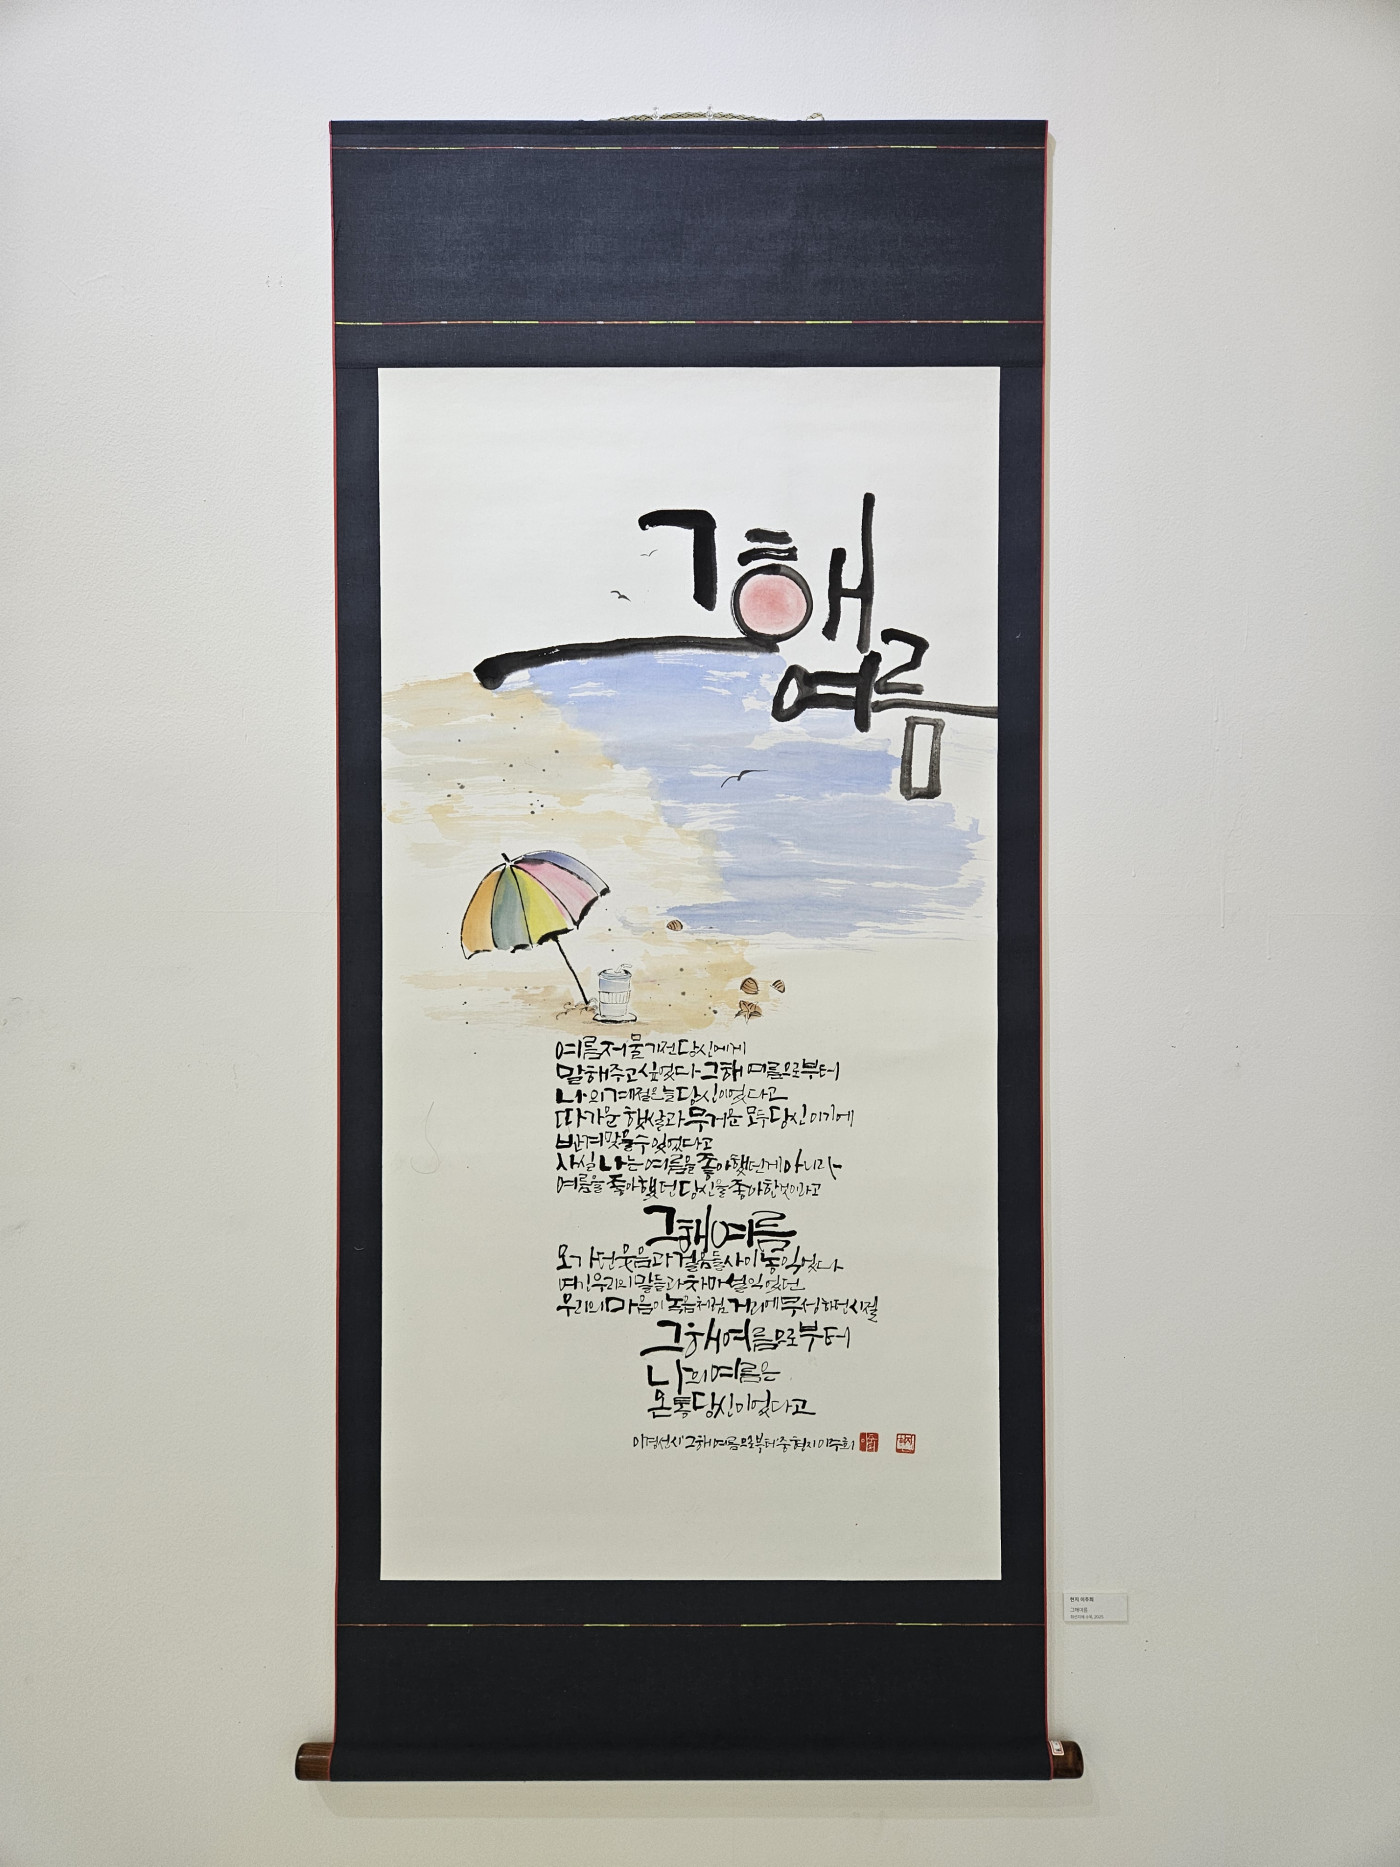 그해
여름
여름 저물기 전 당신에게
말해주고 싶었다 그해 여름으로부터
나의 계절은 늘 당신이었다고
따가운 햇살과 무거운 모두 당신이기에
반겨 맞을 수 있었다고
사실 나는 여름을 좋아했던 게 아니라
여름을 좋아했던 당신을 좋아한 것이라고
그해 여름
오가던 웃음과 걸음들 사이 농익었다
여긴 우리의 말들과 차마 설익었던
우리의 마음이 녹음처럼 거리에 무성하던 시절
그해 여름으로부터
나의 여름은
온통 당신이었다고
이경선 시 '그해 여름으로부터' 중 현지 이주희
현지 이주희
그해여름